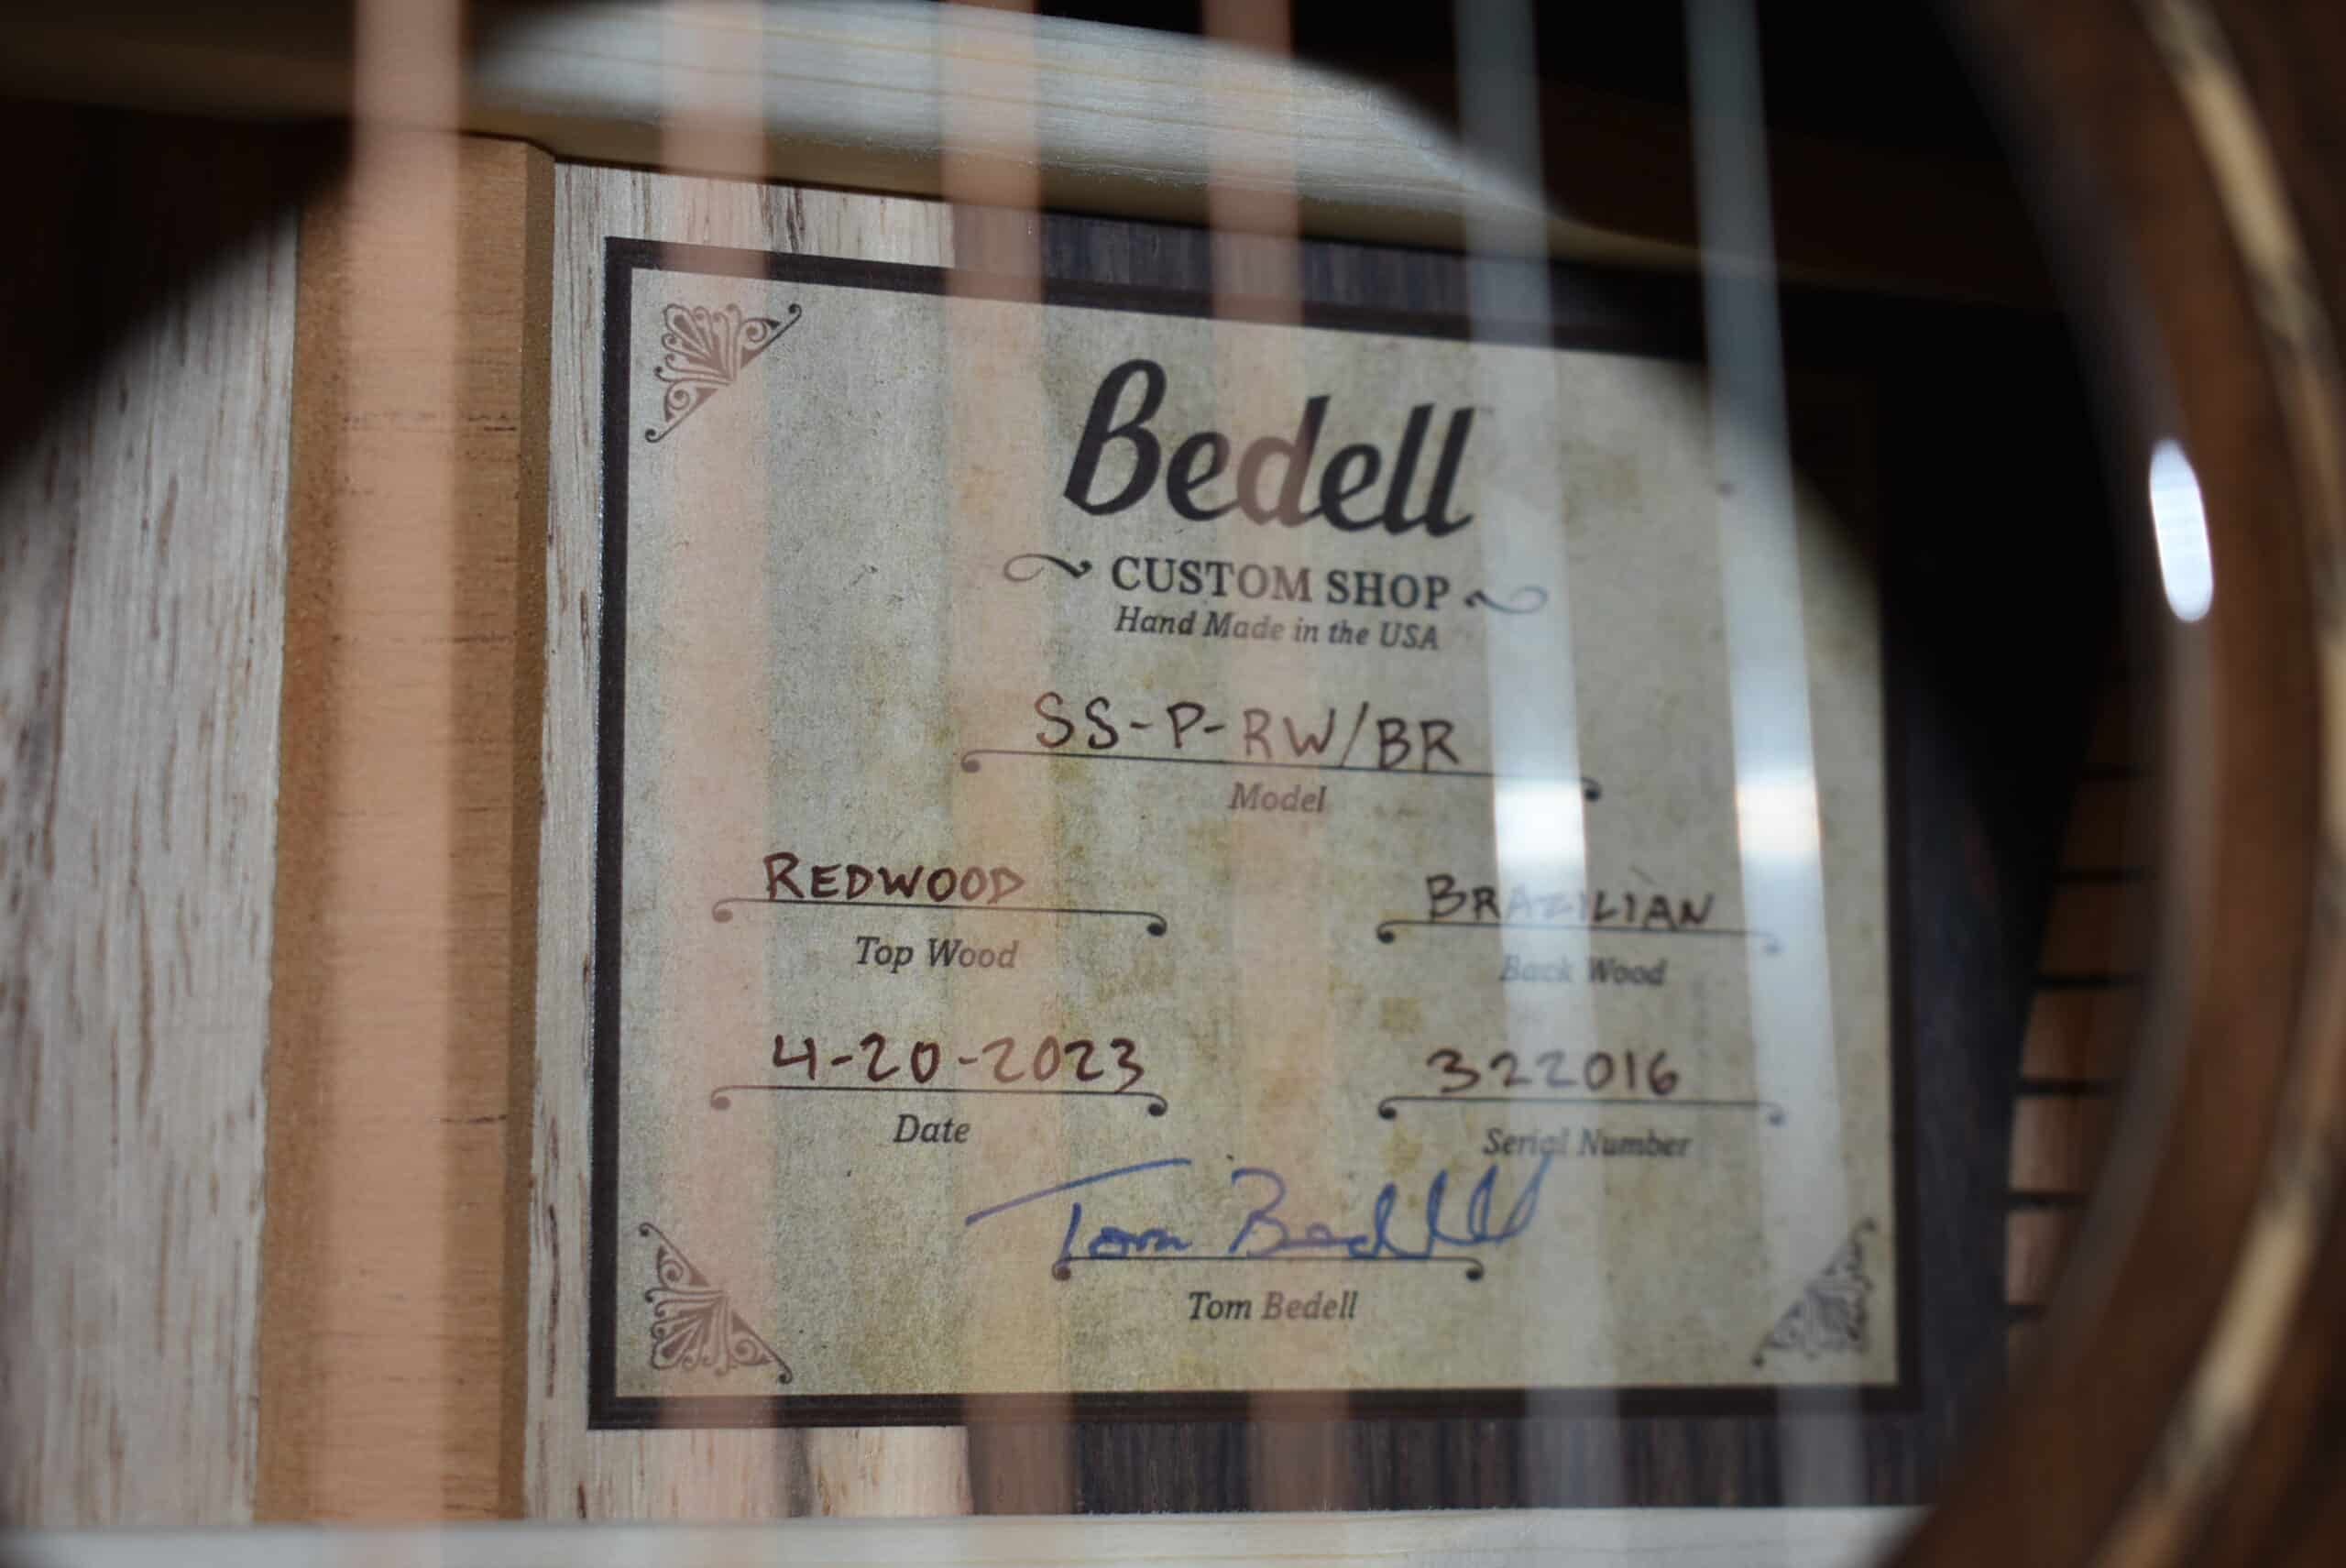 Bedell
CUSTOM SHOP
Hand Made in the USA
SS-P-RW/BR
Model
REDWOOD
BRAZILIAN
Top Wood
Back Wood
4-20-2023
322016
Date
Serial Number
Tom Bedell
Tom Bedell